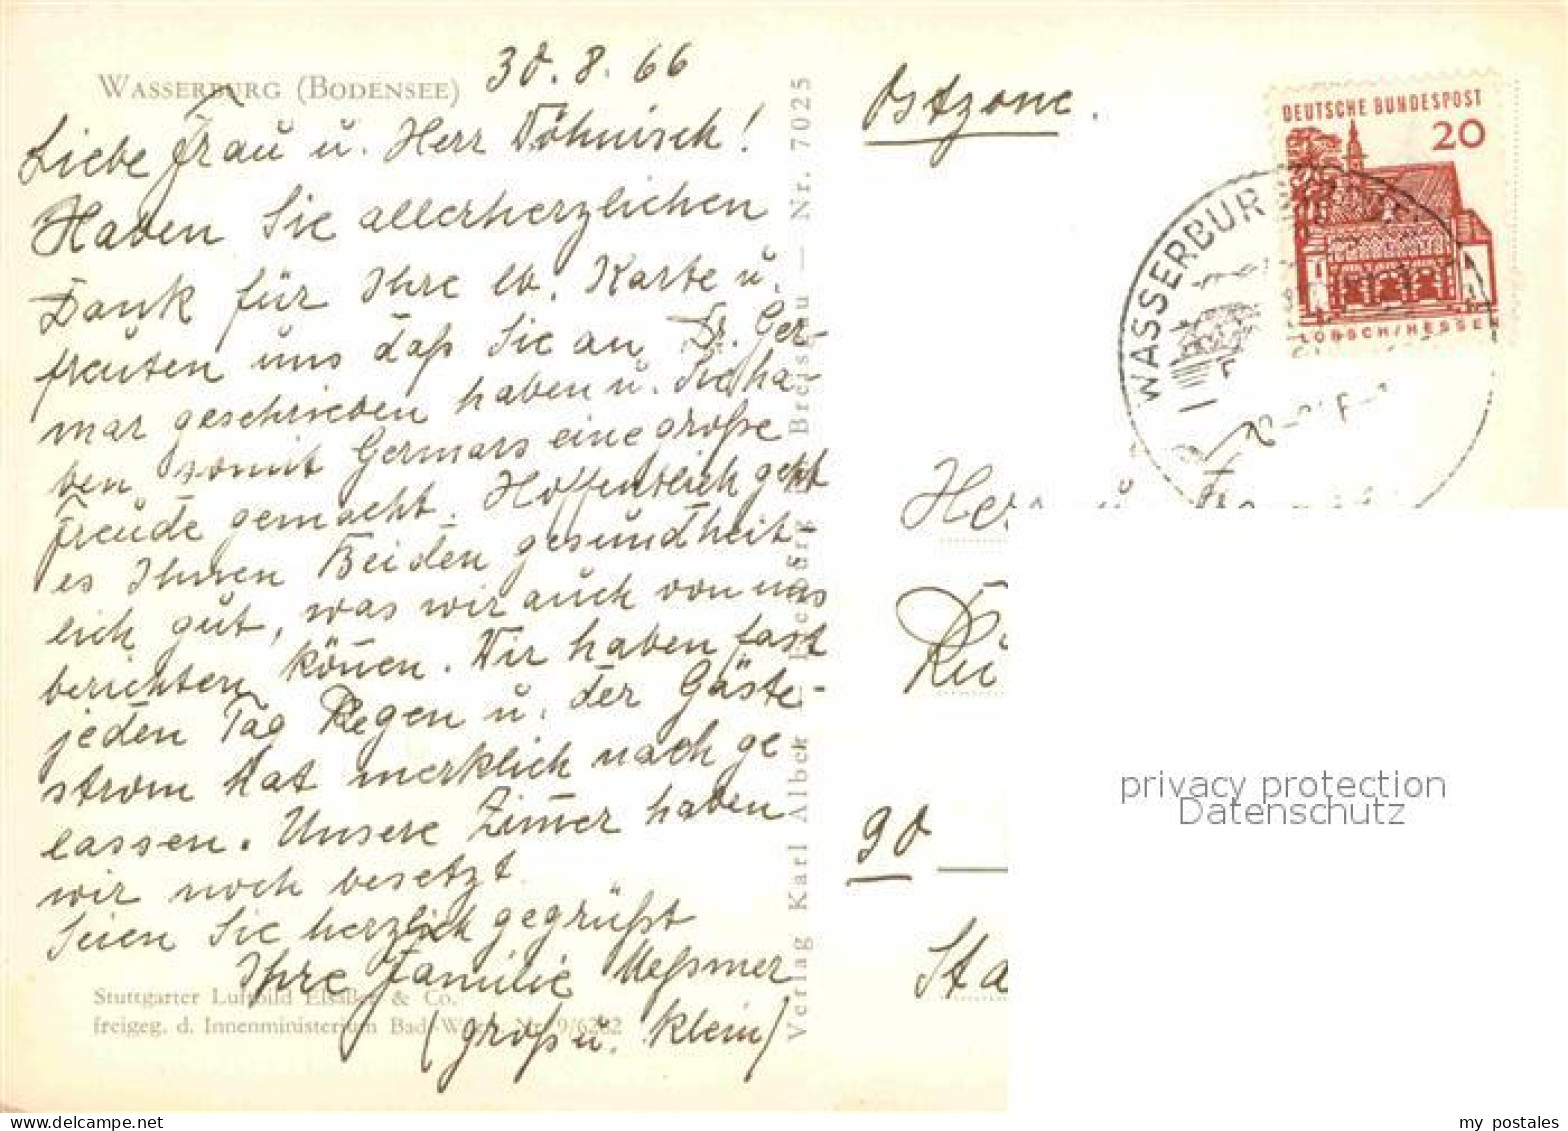 WASSERBURG (BODENSEE)
30. 8. 66
Liebe Frau u. Herr Döhnisch!
Haben Sie allerherzlichen
Dank für Ihre lb. Karte u.
freuten uns daß Sie an Dr. Ger-
mar geschrieben haben u. Sie ha-
ben somit Germars eine große
Freude gemacht. Hoffentlich geht
es Ihnen Beiden gesundheit-
lich gut, was wir auch von uns
berichten können. Wir haben fast
jeden Tag Regen u. der Gäste-
strom hat merklich nach ge
lassen. Unsere Zimmer haben
wir noch besetzt.
Seien Sie herzlich gegrüßt
Ihre Familie Meßmer
(groß u. klein)
Stuttgarter Luftbild Elsäßer & Co.
freigeg. d. Innenministerium Bad.-Württ. Nr. 9/6282
Verlag Karl Albek — Freiburg Breisgau — Nr. 7025
Ostzone.
DEUTSCHE BUNDESPOST
20
LORSCH/HESSEN
WASSERBURG
Herr u.
90
privacy protection
Datenschutz
my postales